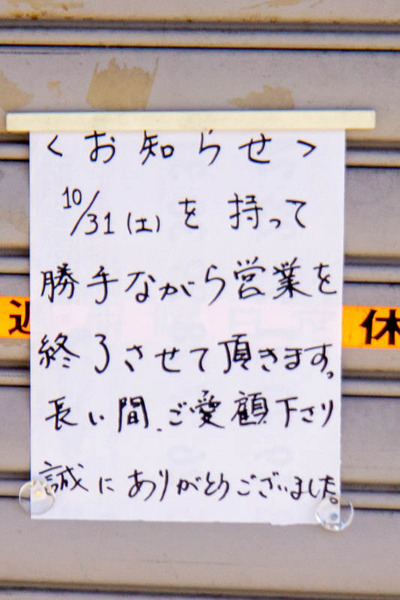 <お知らせ>
10/31(土)を持って
勝手ながら営業を
終了させて頂きます。
長い間、ご愛顧下さり
誠にありがとうございました。
休